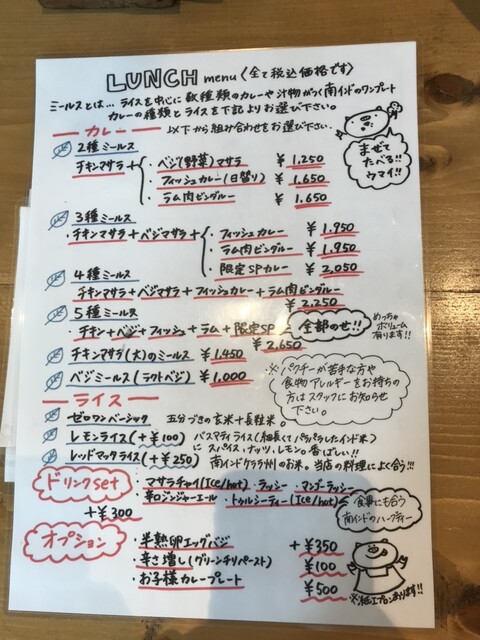 LUNCH menu〈全て税込価格です〉
ミールスとは… ライスを中心に数種類のカレーや汁物がつく南インドのワンプレート
カレーの種類とライスを下記よりお選び下さい。
カレー 以下から組み合わせをお選び下さい.
まぜて
たべる!!
ウマイ!!
2種ミールス
チキンマサラ +
・ベジ(野菜)マサラ ¥1,250
・フィッシュカレー(日替り) ¥1,650
・ラム肉ビンダルー ¥1,650
3種ミールス
・チキンマサラ+ベジマサラ+
・フィッシュカレー ¥1,950
・ラム肉ビンダルー ¥1,950
・限定SPカレー ¥2,050
4種ミールス
チキンマサラ+ベジマサラ+フィッシュカレー+ラム肉ビンダルー
¥2,250
5種ミールス
・チキン+ベジ+フィッシュ+ラム+限定SP
¥2,650
全部のせ!!
めっちゃ
ボリューム
有ります!!
チキンマサラ(大)のミールス ¥1,450
ベジミールス(ラクトベジ) ¥1,000
※パクチーが苦手な方や
食物アレルギーをお持ちの
方はスタッフにお知らせ
下さい。
ライス
ゼロワンベーシック 五分づきの玄米+長粒米。
レモンライス(+¥100) バスマティライス(細長くてパラパラしたインド米)
にスパイス、ナッツ、レモン。香ばしい!!
レッドマッタライス(+¥250) 南インドケララ州のお米。当店の料理によく合う!!!
ドリンクset
+¥300
・マサラチャイ(Ice/hot)・ラッシー・マンゴーラッシー
・辛口ジンジャーエール・トゥルシーティー(Ice/hot)
食事にも合う
南インドのハーブティー
オプション
・半熟卵エッグバジ +¥350
・辛さ増し(グリーンチリペースト) ¥100
・お子様カレープレート ¥500
※紙エプロンあります!!